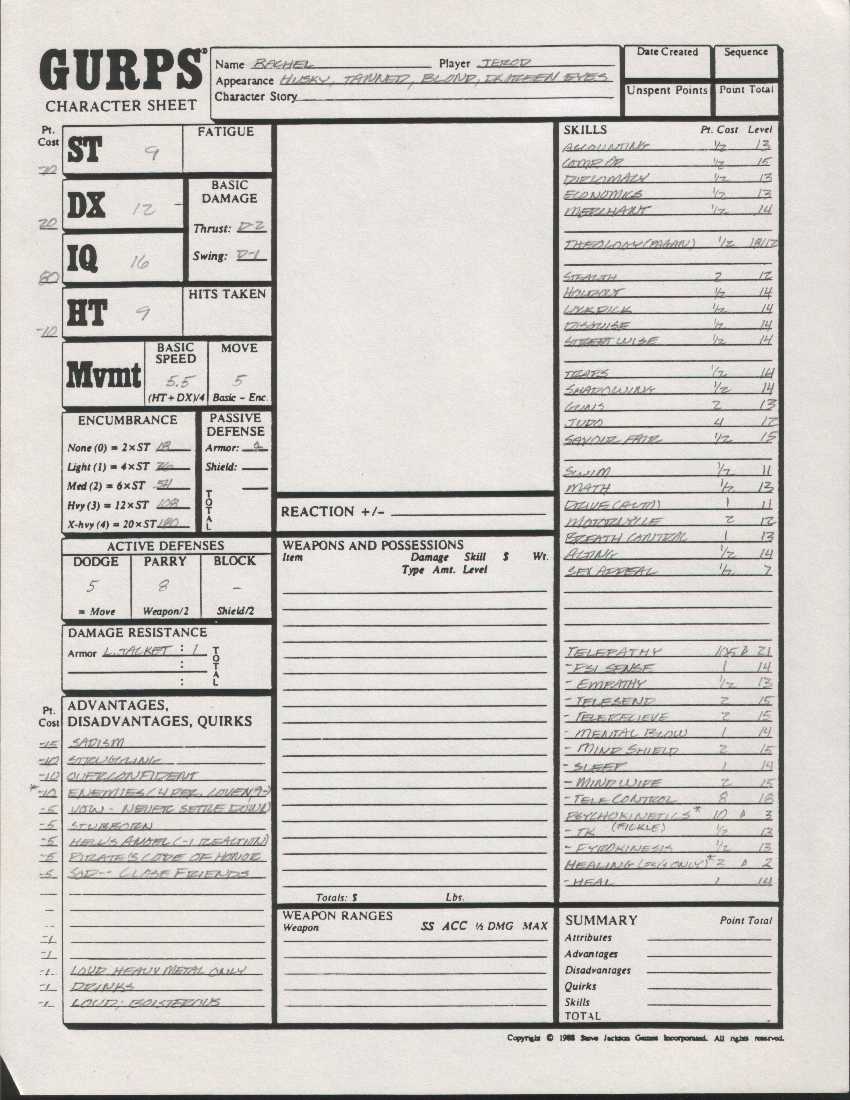 GURPS®
CHARACTER SHEET
Name RACHEL Player JEROD
Appearance HUSKY, TANNED, BLOND, EYES
Character Story
Date Created
Sequence
Unspent Points
Point Total
Pt. Cost
ST 9
FATIGUE
DX 12
20
BASIC DAMAGE
Thrust: D-2
Swing: D-1
IQ 16
80
HT 9
-10
HITS TAKEN
Mvmt
BASIC SPEED
5.5
(HT + DX)/4
MOVE
5
Basic – Enc.
ENCUMBRANCE
None (0) = 2×ST 18
Light (1) = 4×ST 36
Med (2) = 6×ST 54
Hvy (3) = 12×ST 108
X-hvy (4) = 20×ST 180
PASSIVE DEFENSE
Armor:
Shield:
TOTAL
ACTIVE DEFENSES
DODGE PARRY BLOCK
5 8 –
= Move Weapon/2 Shield/2
DAMAGE RESISTANCE
Armor L. JACKET : 1
TOTAL
Pt. Cost
ADVANTAGES, DISADVANTAGES, QUIRKS
-15 SADISM
-10 STRUGGLING
-10 OVERCONFIDENT
*-10 ENEMIES
-5 VOW - NEVER SETTLE DOWN
-5 STUBBORN
-5 HELL'S ANGEL (-1 REACTION)
-5 PIRATE'S CODE OF HONOR
-5 CLOSE FRIENDS
-1
-1
-1 LOUD HEAVY METAL ONLY
-1 DRINKS
-1 LOUD; BOISTEROUS
REACTION +/–
WEAPONS AND POSSESSIONS
Item Damage Skill $ Wt.
Type Amt. Level
Totals: $ Lbs.
WEAPON RANGES
Weapon SS ACC ½ DMG MAX
SKILLS Pt. Cost Level
ACCOUNTING 1/2 13
COMP OP 1/2 15
DIPLOMACY 1/2 13
ECONOMICS 1/2 13
MERCHANT 1/2 14
THEOLOGY (PAGAN) 1/2 18/12
STEALTH 2 12
HOLDOUT 1/2 14
LOCKPICK 1/2 14
DISGUISE 1/2 14
STREETWISE 1/2 14
TRAPS 1/2 14
SHADOWING 1/2 14
GUNS 2 13
JUDO 4 12
SAVOIR FAIR 1/2 15
SWIM 1/2 11
MATH 1/2 13
DRIVE (AUTO) 1 11
MOTORCYCLE 2 12
BREATH CONTROL 1 13
ACTING 1/2 14
SEX APPEAL 1/2 7
TELEPATHY 105 21
- PSI SENSE 1 14
- EMPATHY 1/2 13
- TELESEND 2 15
- TELERECIEVE 2 15
- MENTAL BLOW 1 14
- MIND SHIELD 2 15
- SLEEP 1 14
- MINDWIPE 2 15
- TELECONTROL 8 18
PSYCHOKINETICS* 10 3
- TK (FICKLE) 1/2 13
- PYROKINESIS 1/2 13
HEALING * 2 2
- HEAL 1 14
SUMMARY Point Total
Attributes
Advantages
Disadvantages
Quirks
Skills
TOTAL
Copyright © 1988 Steve Jackson Games Incorporated. All rights reserved.